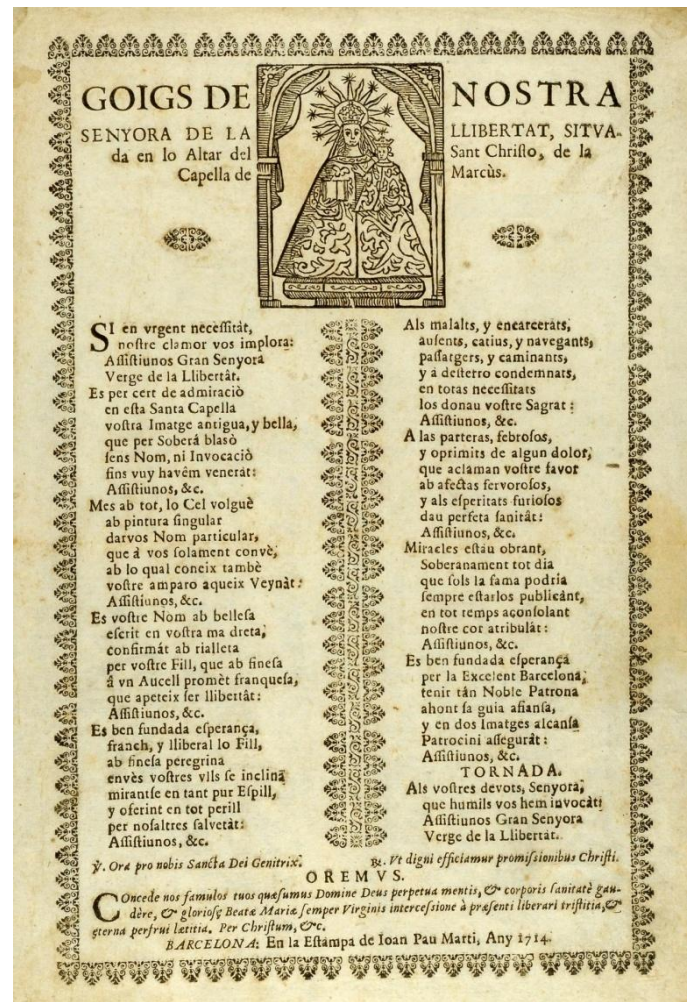 GOIGS DE NOSTRA
SENYORA DE LA LLIBERTAT, SITVA-
da en lo Altar del Sant Christo, de la
Capella de Marcùs.
SI en vrgent necessitàt,
nostre clamor vos implora:
Assistiunos Gran Senyora
Verge de la Llibertàt.
Es per cert de admiraciò
en esta Santa Capella
vostra Imatge antigua, y bella,
que per Soberá blasò
sens Nom, ni Invocaciò
fins vuy havêm venerat:
Assistiunos, &c.
Mes ab tot, lo Cel volguè
ab pintura singular
darvos Nom particular,
que à vos solament convè,
ab lo qual coneix tambè
vostre amparo aqueix Veynàt:
Assistiunos, &c.
Es vostre Nom ab bellesa
escrit en vostra ma dreta,
confirmàt ab rialleta
per vostre Fill, que ab finesa
â vn Aucell promèt franquesa,
que apeteix ser llibertàt:
Assistiunos, &c.
Es ben fundada esperança,
franch, y lliberal lo Fill,
ab finesa peregrina
envès vostres vlls se inclina
mirantse en tant pur Espill,
y oferint en tot perill
per nosaltres salvetàt:
Assistiunos, &c.
Als malalts, y encarcerats,
ausents, catius, y navegants,
passatgers, y caminants,
y á desterro condemnats,
en totas necessitats
los donau vostre Sagrat:
Assistiunos, &c.
A las parteras, febrosos,
y oprimits de algun dolor,
que aclaman vostre favor
ab afectas fervorosos,
y als esperitats furiosos
dau perfeta sanitàt:
Assistiunos, &c.
Miracles estàu obrant,
Soberanament tot dia
que sols la fama podria
sempre estarlos publicànt,
en tot temps aconsolant
nostre cor atribulàt:
Assistiunos, &c.
Es ben fundada esperança
per la Excelent Barcelona,
tenir tàn Noble Patrona
ahont sa guia afiansa,
y en dos Imatges alcansa
Patrocini assegurât:
Assistiunos, &c.
TORNADA.
Als vostres devots, Senyora,
que humils vos hem invocàt:
Assistiunos Gran Senyora
Verge de la Llibertàt.
℣. Ora pro nobis Sancta Dei Genitrix. ℟. Vt digni efficiamur promissionibus Christi.
OREMVS.
Concede nos famulos tuos quæsumus Domine Deus perpetua mentis, & corporis sanitatè gau-
dère, & gloriosę Beatæ Mariæ semper Virginis intercessione à præsenti liberari tristitia, &
ęterna perfrui lætitia. Per Christum, &c.
BARCELONA: En la Estàmpa de Ioan Pau Marti, Any 1714.